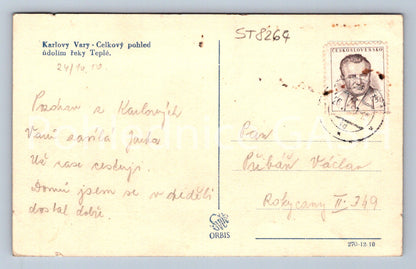 ST8264
Karlovy Vary - Celkový pohled
údolím řeky Teplé.
ČESKOSLOVENSKO
Pozdrav z Karlových
Varů zasílá Jarda
Už zase cestuji.
Domů jsem se v neděli
dostal dobře.
Pan
Přibáň Václav
Rokycany II. 349
ORBIS
270-12.10